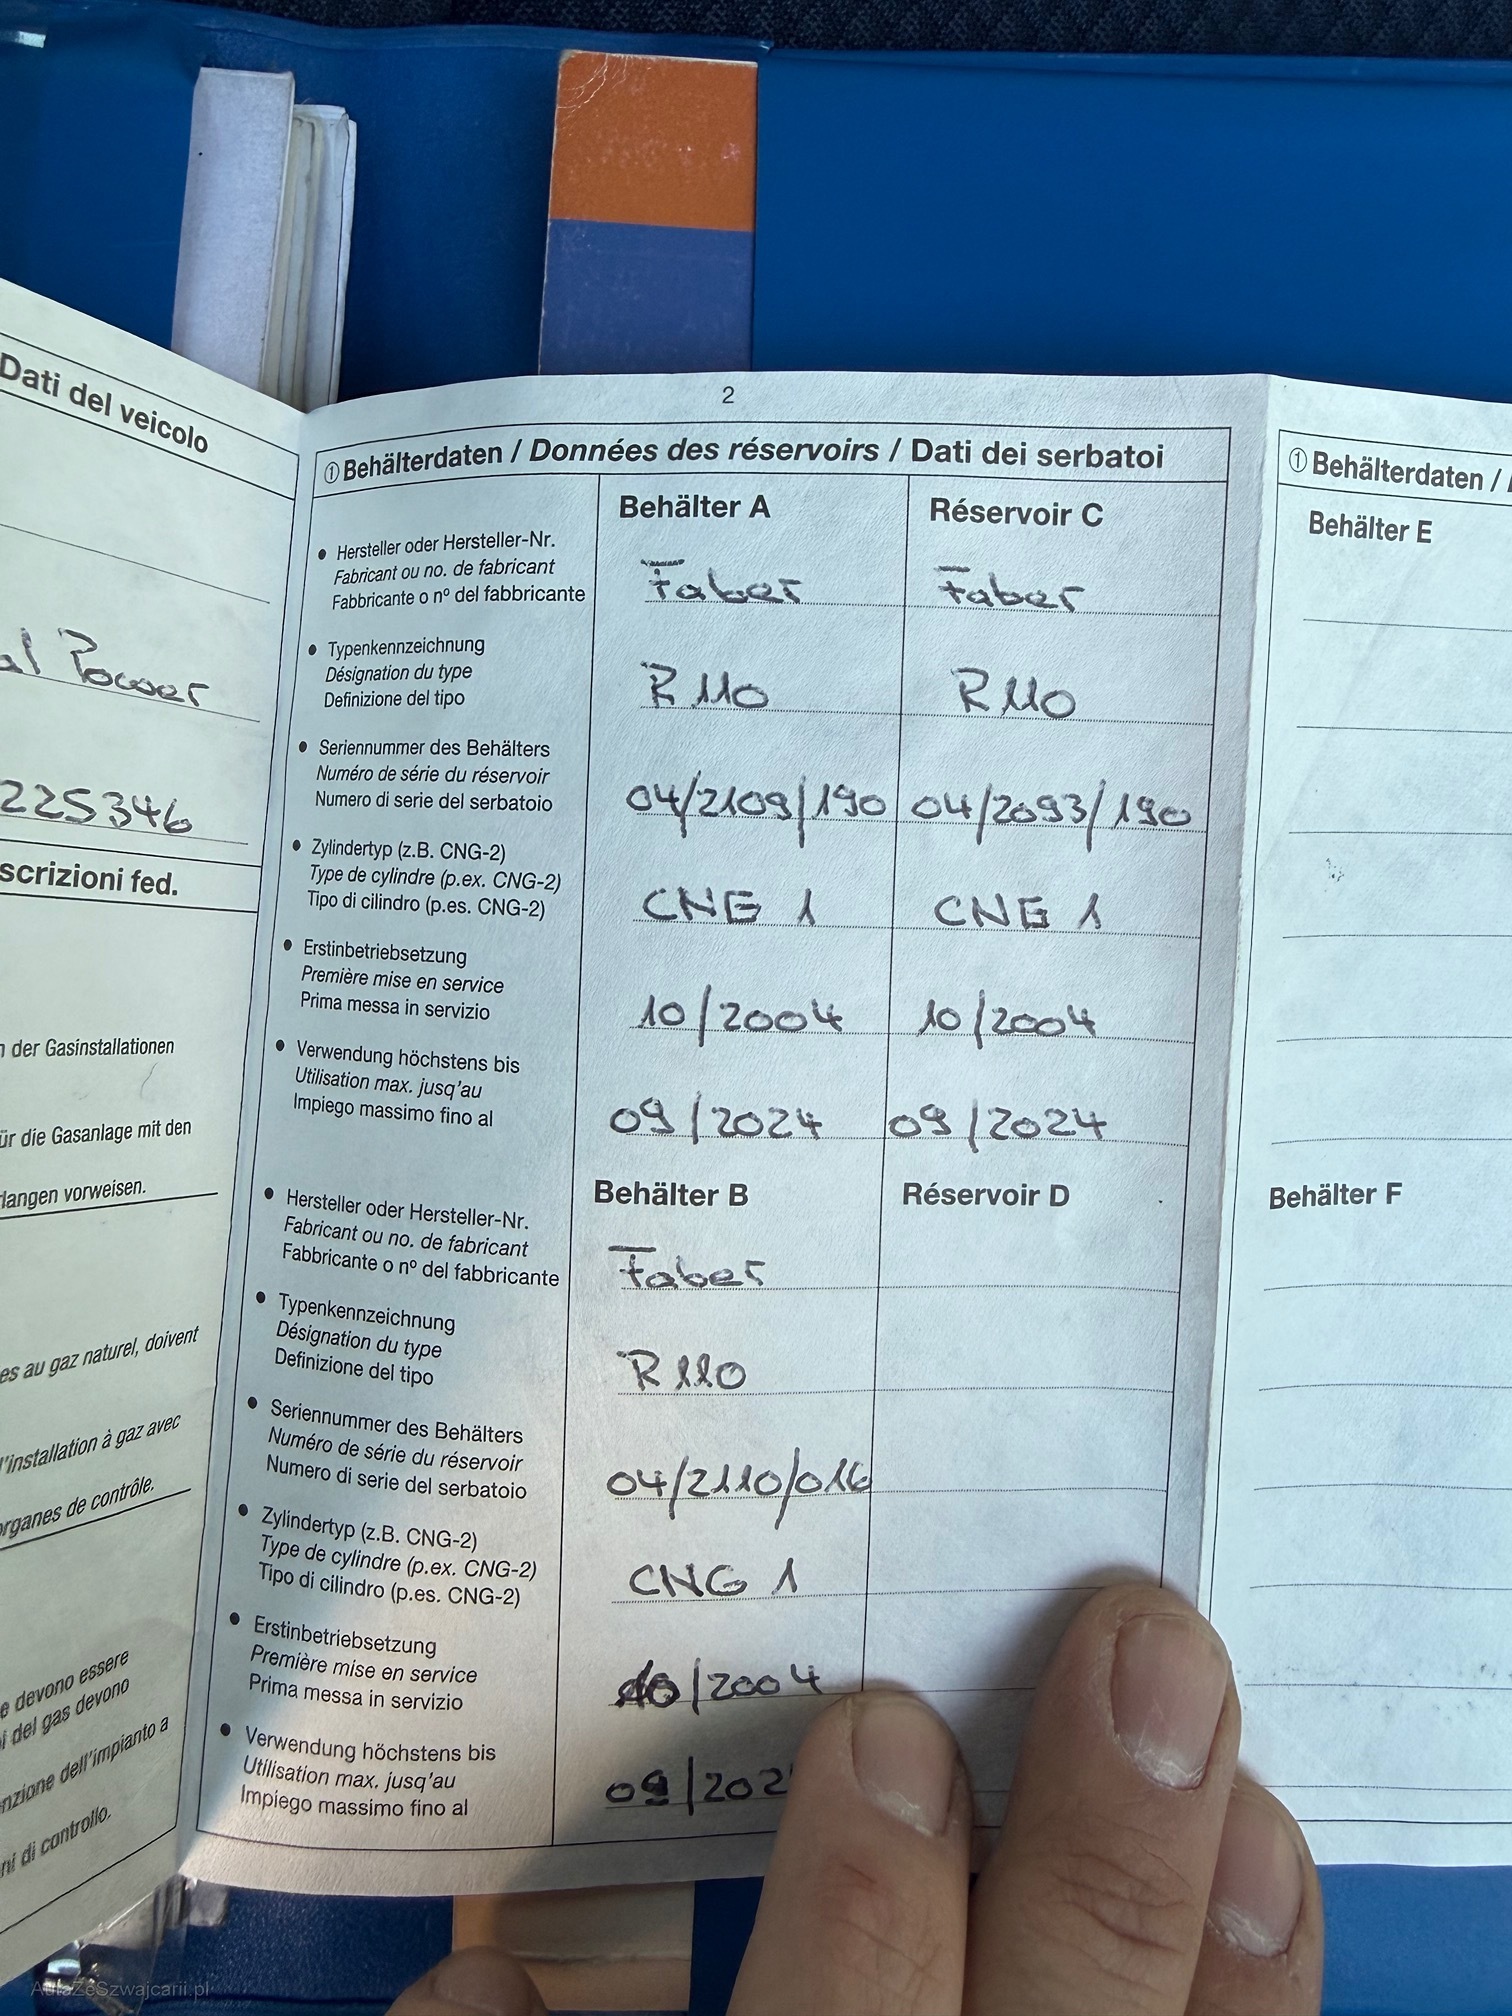 Dati del veicolo
al Power
225346
scrizioni fed.
n der Gasinstallationen
ür die Gasanlage mit den
langen vorweisen.
es au gaz naturel, doivent
l'installation à gaz avec
organes de contrôle.
e devono essere
i del gas devono
nzione dell'impianto a
ni di controllo.
2
① Behälterdaten / Données des réservoirs / Dati dei serbatoi
Behälter A Réservoir C
• Hersteller oder Hersteller-Nr.
Fabricant ou no. de fabricant
Fabbricante o nº del fabbricante
Faber Faber
• Typenkennzeichnung
Désignation du type
Definizione del tipo
R 110 R 110
• Seriennummer des Behälters
Numéro de série du réservoir
Numero di serie del serbatoio
04/2109/190 04/2093/190
• Zylindertyp (z.B. CNG-2)
Type de cylindre (p.ex. CNG-2)
Tipo di cilindro (p.es. CNG-2)
CNG 1 CNG 1
• Erstinbetriebsetzung
Première mise en service
Prima messa in servizio
10/2004 10/2004
• Verwendung höchstens bis
Utilisation max. jusqu'au
Impiego massimo fino al
09/2024 09/2024
Behälter B Réservoir D
• Hersteller oder Hersteller-Nr.
Fabricant ou no. de fabricant
Fabbricante o nº del fabbricante
Faber
• Typenkennzeichnung
Désignation du type
Definizione del tipo
R 110
• Seriennummer des Behälters
Numéro de série du réservoir
Numero di serie del serbatoio
04/2110/016
• Zylindertyp (z.B. CNG-2)
Type de cylindre (p.ex. CNG-2)
Tipo di cilindro (p.es. CNG-2)
CNG 1
• Erstinbetriebsetzung
Première mise en service
Prima messa in servizio
10/2004
• Verwendung höchstens bis
Utilisation max. jusqu'au
Impiego massimo fino al
09/202
① Behälterdaten /
Behälter E
Behälter F
AutaZeSzwajcarii.pl